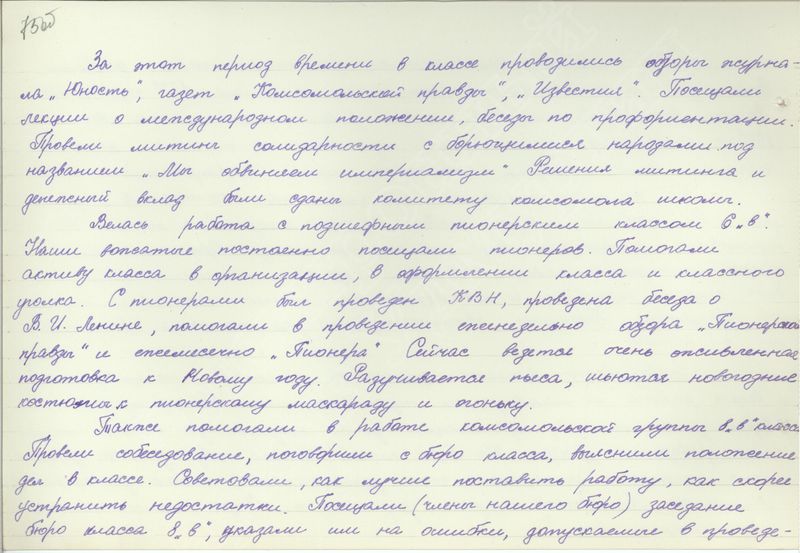 75об
За этот период времени в классе проводились обзоры журна-
ла „Юность", газет „Комсомольской правды", „Известия". Посещали
лекции о международном положении, беседы по профориентации.
Провели митинг солидарности с борющимися народами под
названием „Мы обвиняем империализм" Решения митинга и
денежный вклад были сданы комитету комсомола школы.
Велась работа с подшефным пионерским классом 6„в".
Наши вожатые постоенно посещали пионеров. Помогали
активу класса в организации, в оформлении класса и классного
уголка. С пионерами был проведен КВН, проведена беседа о
В.И. Ленине, помогали в проведении еженедельно обзора „Пионерской
правды" и ежемесечно „Пионера" Сейчас ведется очень оживленная
подготовка к Новому году. Разучивается пьеса, шьются новогодние
костюмы к пионерскому маскараду и огоньку.
Также помогали в работе комсомольской группы 8„в" класса
Провели собеседование, поговорили с бюро класса, выяснили положение
дел в классе. Советовали, как лучше поставить работу, как скорее
устранить недостатки. Посещали (члены нашего бюро) заседание
бюро класса 8„в", указали им на ошибки, допускаемые в проведе-